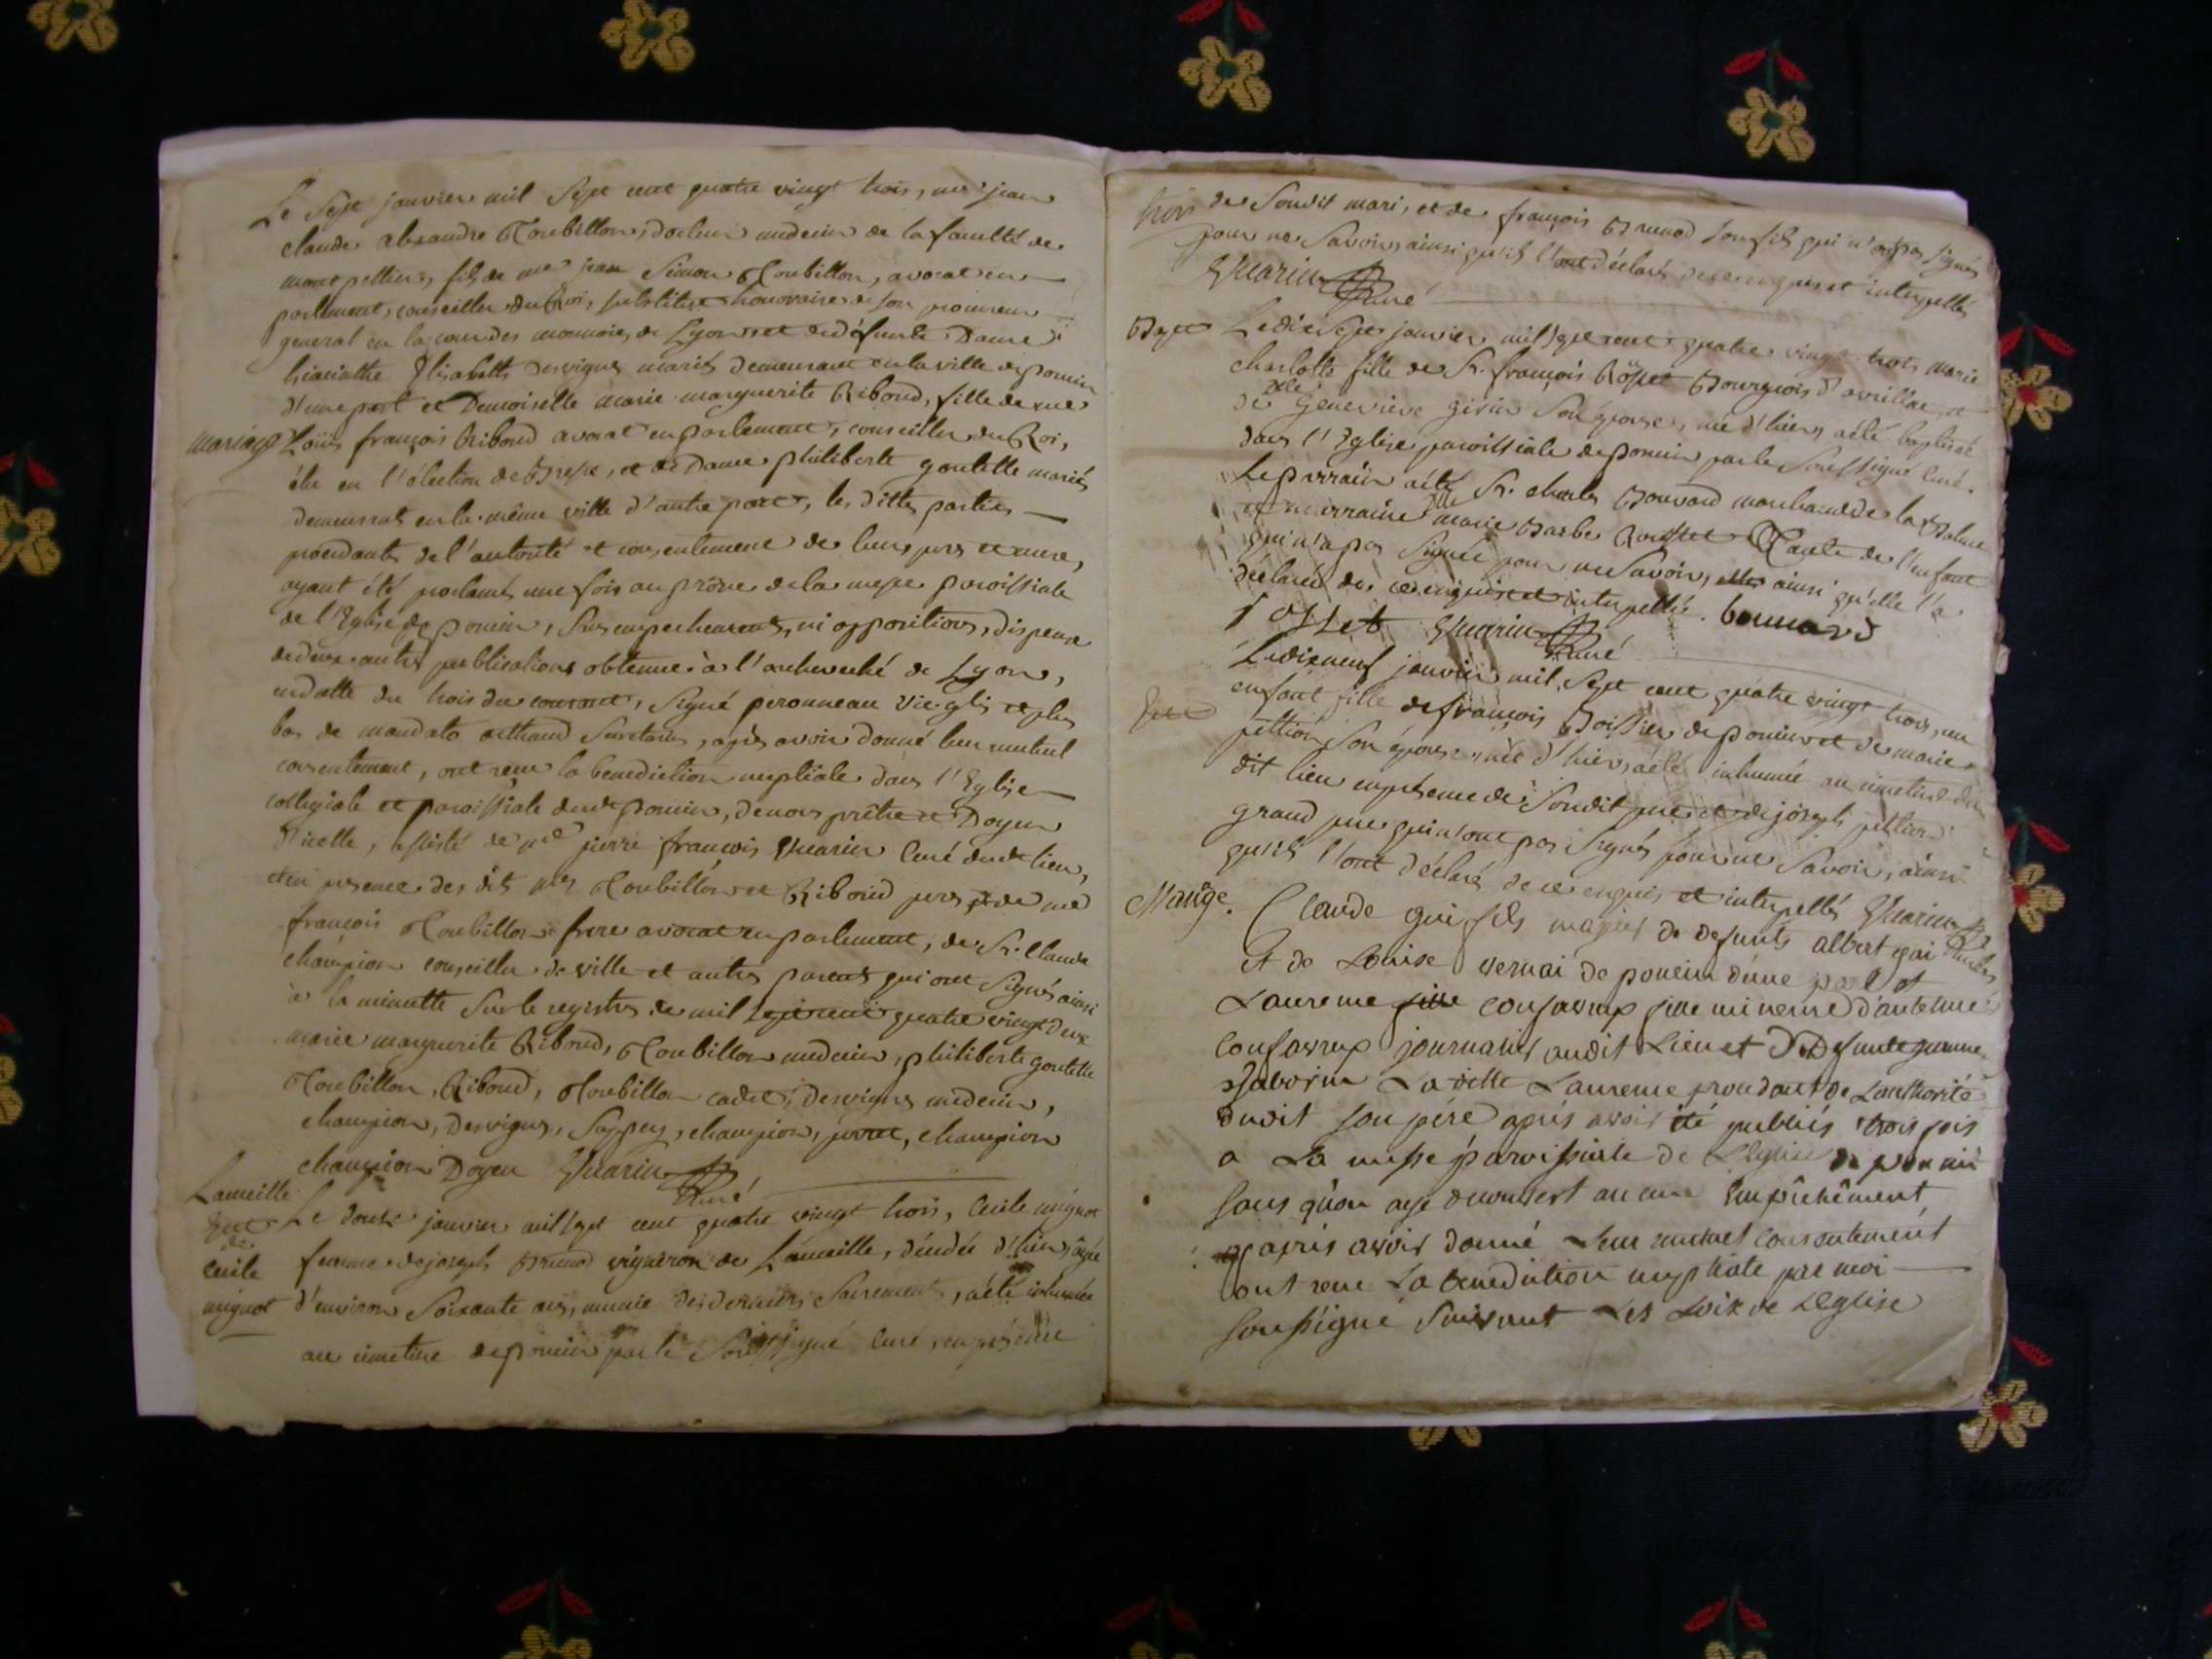 Le Sept janvier mil Sept cent quatre vingt trois, me jean
claude alexandre Tombillon, docteur médecin de la faculté de
montpellier, fils de me jean Simon Tombillon, avocat en
parlement, conseiller du Roi, substitut honoraire de son procureur
general en la cour des monnoies de Lyon et de défunte Dame
hiacinthe Elisabeth Desvignes mariés demeurant en la ville de poncin
d'une part et Demoiselle marie marguerite Riboud, fille de me
mariage Louis françois Riboud avocat en parlement, conseiller du Roi,
élu en l'élection de Bresse, et de Dame philiberte goutelle mariés
demeurants en la même ville d'autre part, les dittes parties
procédants de l'autorité et consentement de leurs pères et mere,
ayant été proclamés une fois au prône de la messe paroissiale
de l'Eglise de poncin, Sans empechements, ni oppositions, dispense
de deux autres publications obtenue à l'archeveché de Lyon,
en datte du trois du courant, Signé peronneau vic glis et plus
bas de mandato Secretaire, après avoir donné leur mutuel
consentement, ont reçu la benediction nuptiale dans l'Eglise
collegiale et paroissiale dudt poncin, de nous prêtre et Doyen
d'icelle, assisté de me pierre françois Guarin Curé dudt lieu,
et en presence des dits mes Tombillon et Riboud peres et de me
françois Tombillon frere avocat en parlement, de Sr. Claude
champion conseiller de ville et autres parents qui ont Signés ainsi
à la minutte Sur le registre de mil Sept cent quatre vingt deux
marie marguerite Riboud, Tombillon medecin, philiberte goutelle
Tombillon, Riboud, Tombillon cadet, Desvignes médecin,
champion, Desvignes, champion, champion
champion Doyen Guarin Curé
Lameille
Le douze janvier mil Sept cent quatre vingt trois, Cecile mignot
de
Cecile femme de joseph Brunod vigneron de Lameille, décédée d'hier, agée
mignot d'environ Soixante ans, munie des derniers Sacrements, a été inhumée
au cimetiere de poncin par le Soussigné Curé, en présence
trois de Soudit mari, et de françois Brunod Son fils qui n'ont pas Signés
pour ne Savoir, ainsi qu'ils l'ont déclaré de ce enquis et interpellés
Guarin Curé
Bapt Le dix Sept janvier mil Sept cent quatre vingt trois, marie
charlotte fille de Sr. françois Rosset Bourgeois d'avrillat, et
de Dlle Genevieve Son épouse, née d'hier, a été baptisée
dans l'Eglise paroissiale de poncin par le Soussigné Curé.
Le parrain a été Sr. charles Bonnard marchand de la Balme
et marraine Dlle marie Barbe Rosset Tante de l'enfant
qui n'a pas Signée pour ne Savoir, ainsi qu'elle l'a
déclaré de ce enquise et interpellée. bonnard
rosset Guarin Curé
Le dix neuf janvier mil Sept cent quatre vingt trois, un
enfant fille de françois Boissier de poncin et de marie
pittion Son épouse, née d'hier, a été inhumée au cimetiere du
dit lieu en presence de Soudit pere et de joseph pittion
grand pere qui n'ont pas Signés pour ne Savoir, ainsi
qu'ils l'ont déclaré de ce enquis et interpellés Guarin Curé
Mariage. Claude gui fils majeur de defunts albert gai
Et de Louise vernai de poncin d'une part et
Laurence fille mineure d'antelme
journalier audit Lieu et De Defunte jeanne
La ditte Laurence procedant de Lauthorité
dudit son pére aprés avoir été publiés trois fois
a La messe paroissiale de L'Eglise de poncin
sans qu'on aye decouvert aucun Empêchêment
aprés avoir donné Leur mutuel consentement
ont reçu La benediction nuptiale par moi
soussigné Suivant Les Loix de LEglise